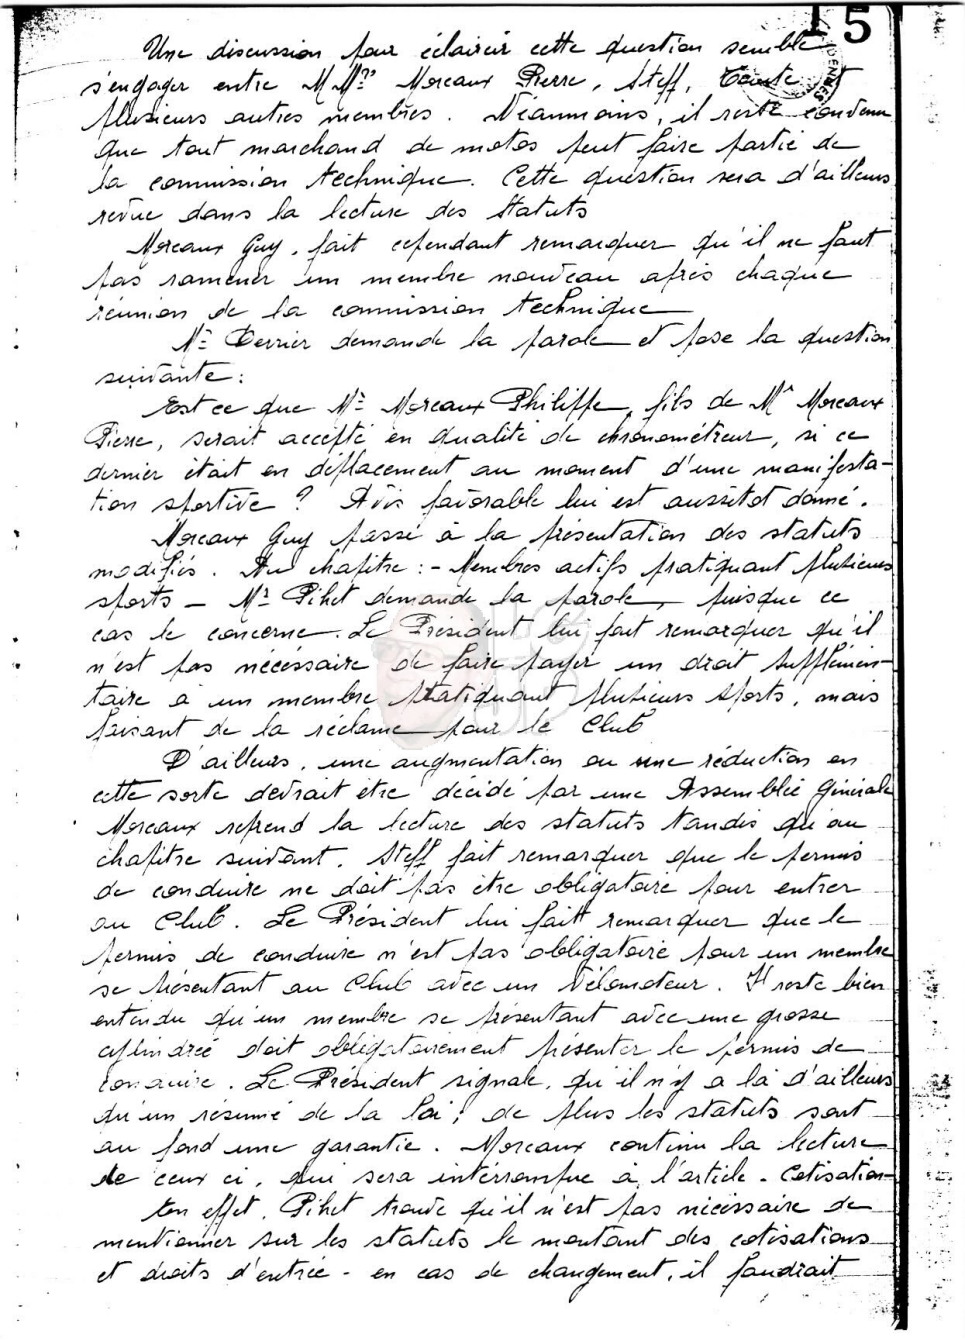 15
Une discussion pour éclaircir cette question semble
s'engager entre MMrs Moreaux Pierre, Steff, et
plusieurs autres membres. Néanmoins, il reste convenu
que tout marchand de motos peut faire partie de
la commission technique. Cette question sera d'ailleurs
revue dans la lecture des Statuts
Moreaux Guy, fait cependant remarquer qu'il ne faut
pas ramener un membre nouveau après chaque
réunion de la commission technique
Mr Derrier demande la parole et pose la question
suivante :
Est ce que Mr Moreaux Philippe, fils de Mr Moreaux
Pierre, serait accepté en qualité de chronométreur, si ce
dernier était en déplacement au moment d'une manifesta-
tion sportive ? Avis favorable lui est aussitot donné.
Moreaux Guy passe à la présentation des statuts
modifiés. Au chapitre : - Membres actifs pratiquant plusieurs
sports - Mr Pihet demande la parole, puisque ce
cas le concerne. Le Président lui fait remarquer qu'il
n'est pas nécéssaire de faire payer un droit supplémen-
taire à un membre pratiquant plusieurs sports, mais
faisant de la réclame pour le Club
D'ailleurs, une augmentation ou une réduction en
cette sorte devrait être décidé par une Assemblée Générale
Moreaux reprend la lecture des statuts tandis qu'au
chapitre suivant, Steff fait remarquer que le permis
de conduire ne doit pas être obligatoire pour entrer
au Club. Le Président lui fait remarquer que le
permis de conduire n'est pas obligatoire pour un membre
se présentant au Club avec un Vélomoteur. Il reste bien
entendu qu'un membre se présentant avec une grosse
cylindrée doit obligatoirement présenter le permis de
conduire. Le Président signale, qu'il n'y a là d'ailleurs
qu'un résumé de la loi ; de plus les statuts sont
au fond une garantie. Moreaux continu la lecture
de ceux ci, qui sera intérrompue à l'article - Cotisation -
En effet, Pihet trouve qu'il n'est pas nécéssaire de
mentionner sur les statuts le montant des cotisations
et droits d'entrée - en cas de changement, il faudrait